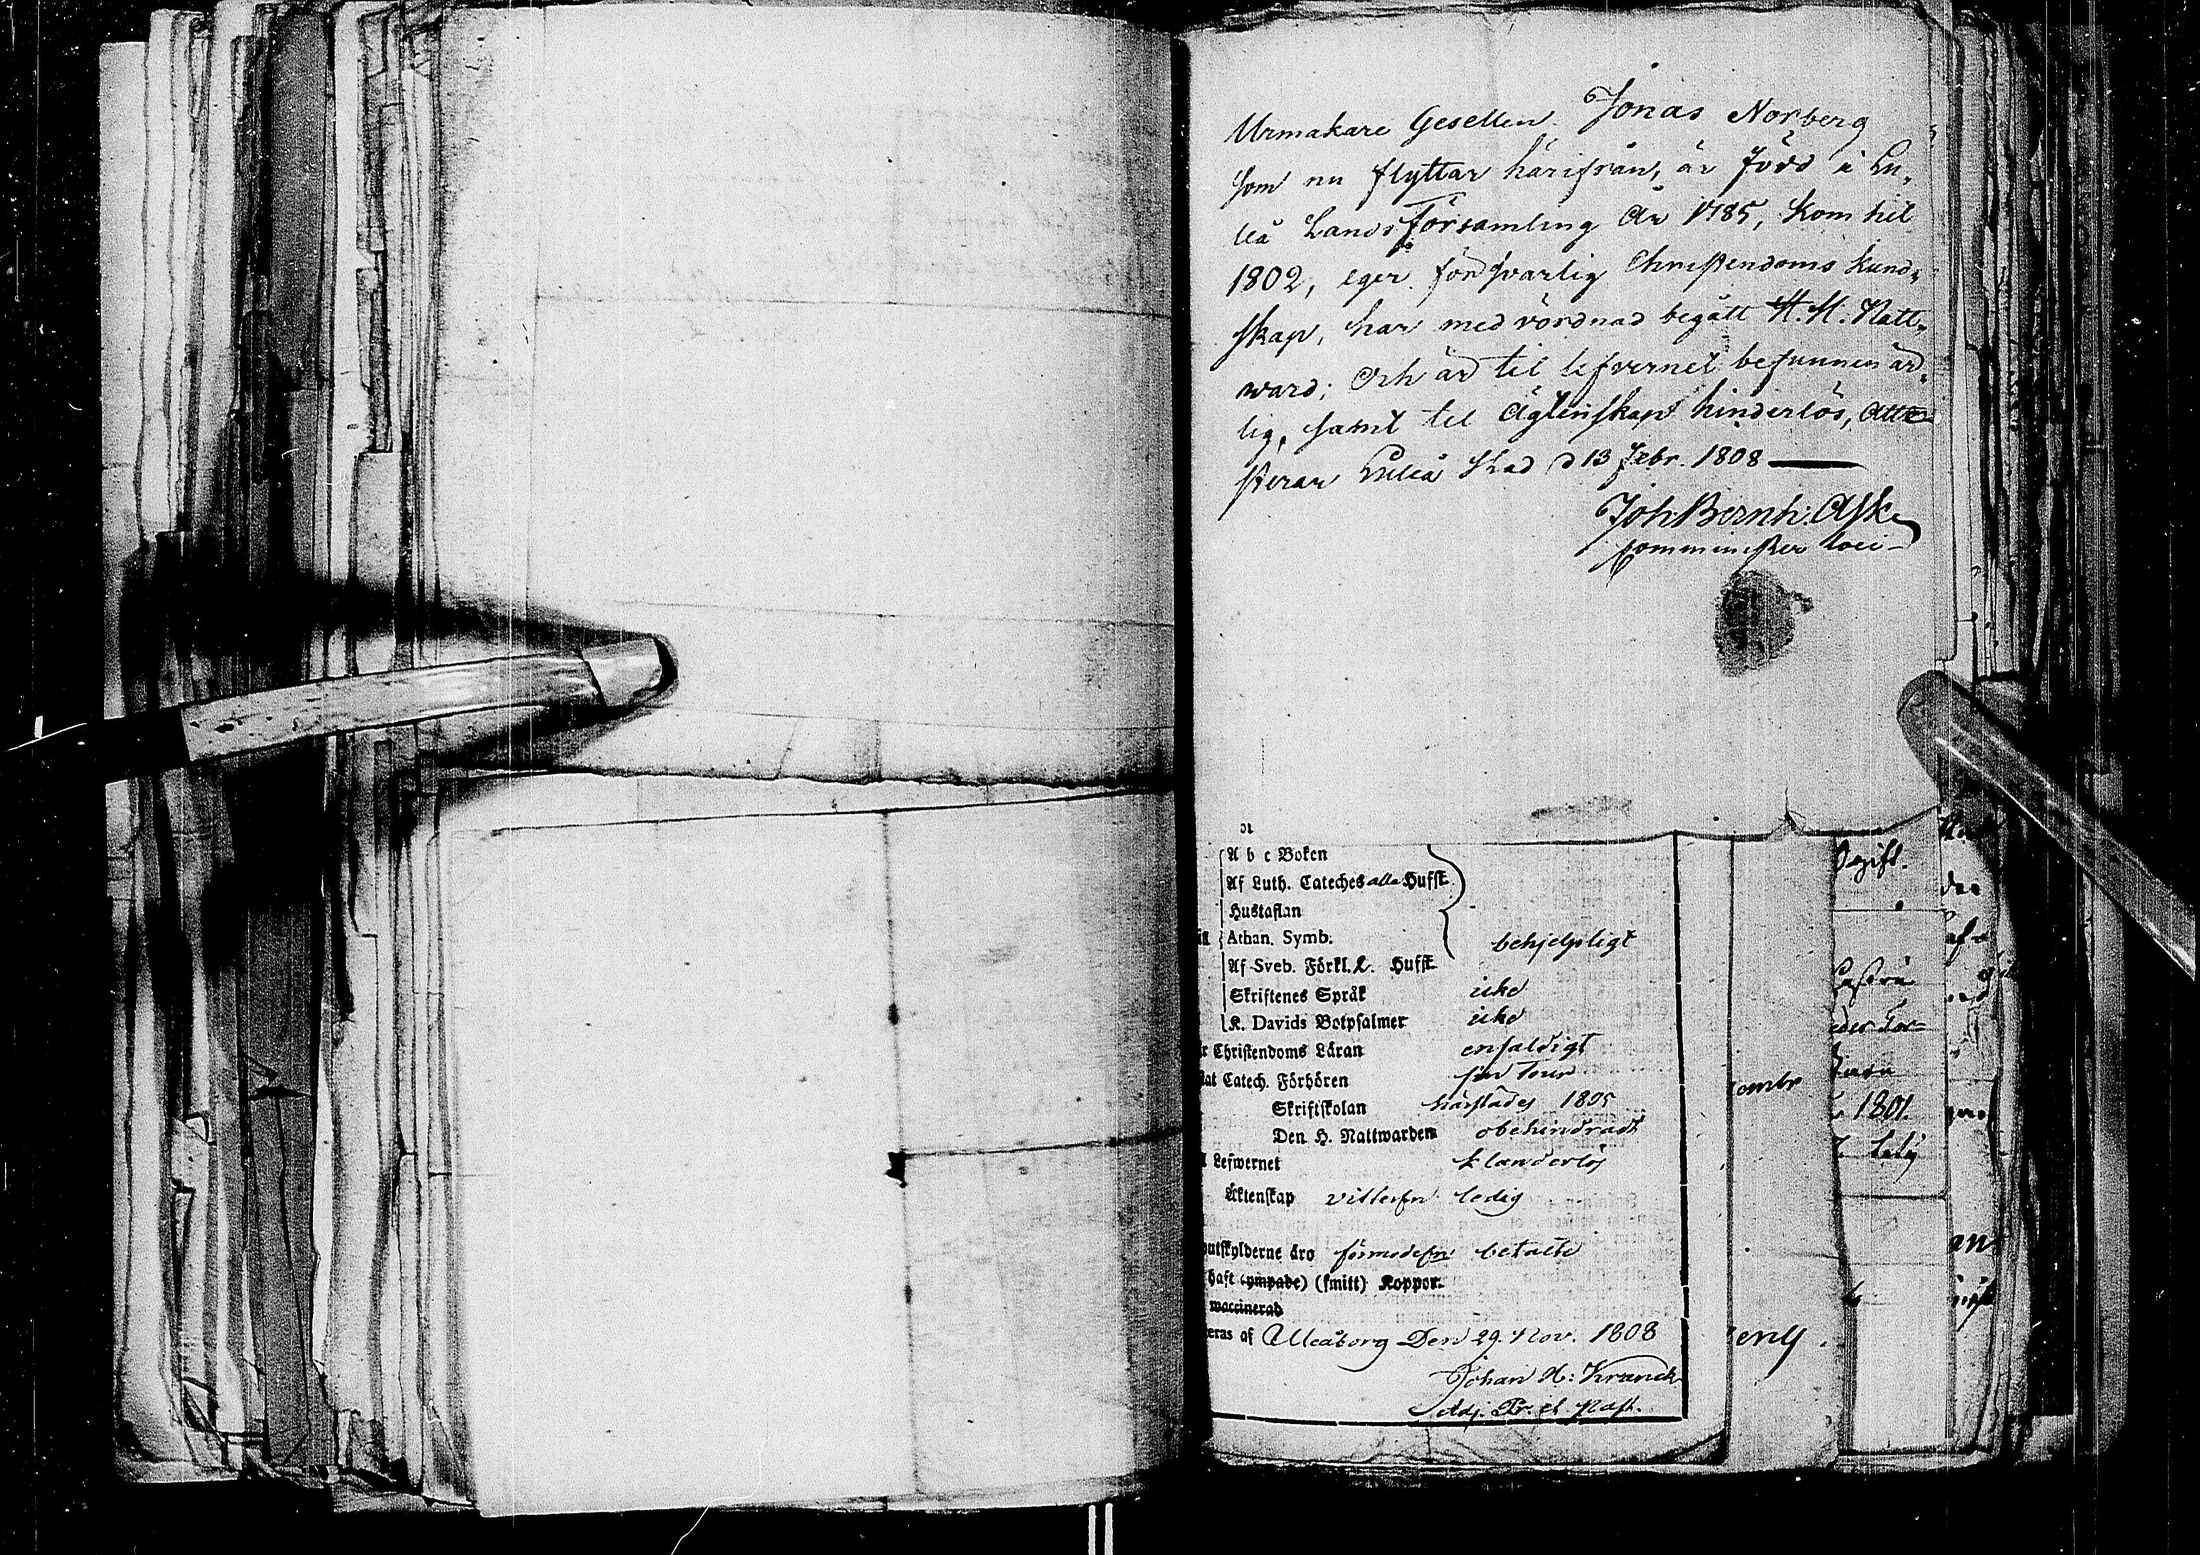 Urmakare Gesellen Jonas Norberg
som nu flyttar härifrån, är född i Lu-
leå Lands Församling År 1785, kom hit
1802, eger försvarlig Christendoms kund-
skap, har med vördnad begått H. H. Natt-
ward; Och är til lefvernet befunnen är-
lig, samt til Ägtenskap hinderlös, Atte-
sterar Luleå Stad d 13 Febr. 1808
Joh Bernh: Ask
Comminister loci
A b c Boken
Af Luth. Cateches alla Hufst.
Hustaflan
Athan. Symb.
behjelpligt
Af Sveb. Förkl. 2. Hufst.
Skriftenes Språk icke
K. Davids Botpsalmer icke
r Christendoms Läran enfaldigt
tat Catech. Förhören sin tour
Skriftskolan härstädes 1805
Den H. Nattwarden obehindradt
l Lefwernet klanderlös
Äktenskap vitterl:n ledig
utskylderne äro förmodel:n betalte
haft (ympade) (smitt) Koppor.
waccinerad
eras af Uleåborg Den 29. Nov. 1808
Johan H: Kranck
Adj. Pr. et Past.
Ogift.
1801.